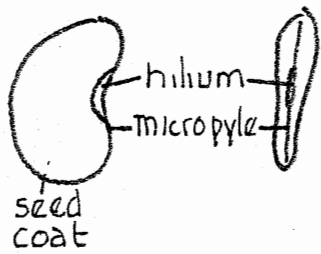 hilium
micropyle
seed
coat